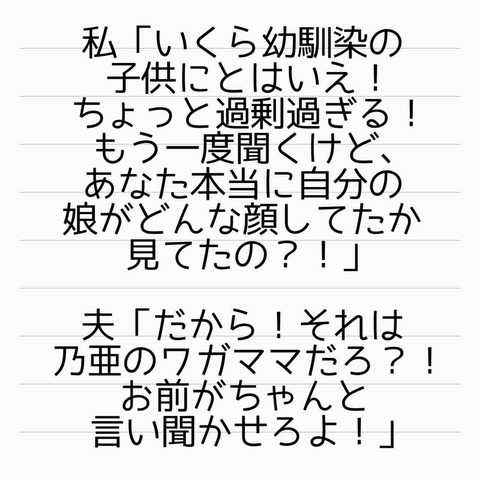 私「いくら幼馴染の
子供にとはいえ！
ちょっと過剰過ぎる！
もう一度聞くけど、
あなた本当に自分の
娘がどんな顔してたか
見てたの？！」
夫「だから！それは
乃亜のワガママだろ？！
お前がちゃんと
言い聞かせろよ！」